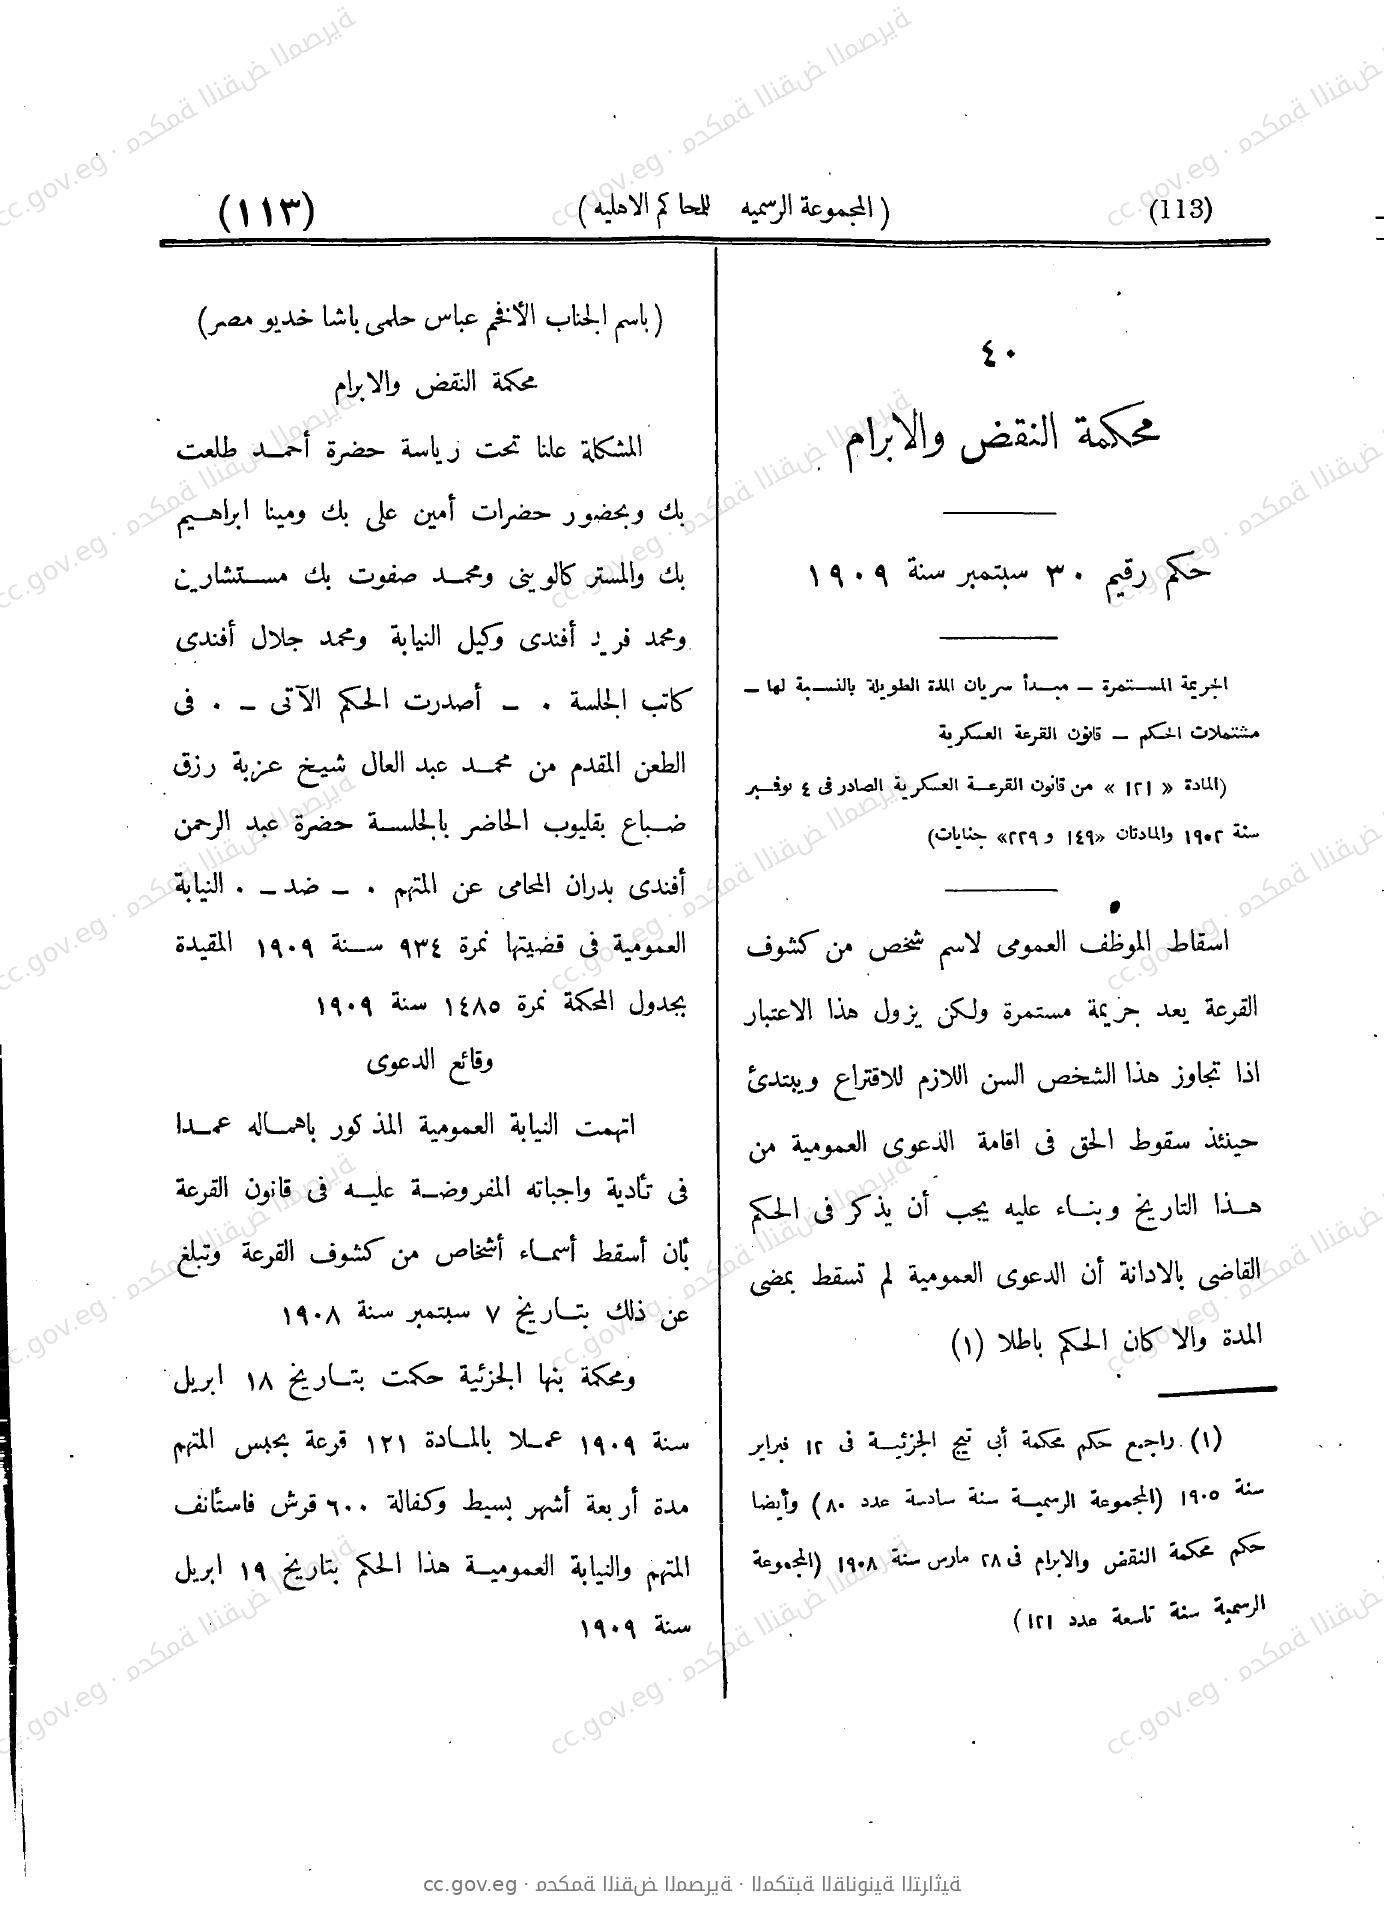 (113) (المجموعة الرسميه للمحاكم الاهليه) (١١٣)
٤٠
محكمة النقض والابرام
حكم رقيم ٣٠ سبتمبر سنة ١٩٠٩
الجريمة المستمرة – مبدأ سريان المدة الطويلة بالنسبة لها –
مشتملات الحكم – قانون القرعة العسكرية
(المادة « ١٢١ » من قانون القرعة العسكرية الصادر فى ٤ نوفمبر
سنة ١٩٠٢ والمادتان «١٤٩ و ٢٢٩» جنايات)
اسقاط الموظف العمومى لاسم شخص من كشوف
القرعة يعد جريمة مستمرة ولكن يزول هذا الاعتبار
اذا تجاوز هذا الشخص السن اللازم للاقتراع ويبتدئ
حينئذ سقوط الحق فى اقامة الدعوى العمومية من
هذا التاريخ وبناء عليه يجب أن يذكر فى الحكم
القاضى بالادانة أن الدعوى العمومية لم تسقط بمضى
المدة والا كان الحكم باطلا (١)
(١) راجع حكم محكمة أبى تيج الجزئية فى ١٢ فبراير
سنة ١٩٠٥ (المجموعة الرسمية سنة سادسة عدد ٨٠) وأيضا
حكم محكمة النقض والابرام فى ٢٨ مارس سنة ١٩٠٨ (المجموعة
الرسمية سنة تاسعة عدد ١٢١)
(باسم الجناب الأفخم عباس حلمى باشا خديو مصر)
محكمة النقض والابرام
المشكلة علنا تحت رياسة حضرة أحمد طلعت
بك وبحضور حضرات أمين على بك ومينا ابراهيم
بك والمستر كالوينى ومحمد صفوت بك مستشارين
ومحمد فريد أفندى وكيل النيابة ومحمد جلال أفندى
كاتب الجلسة ٠ – أصدرت الحكم الآتى – ٠ فى
الطعن المقدم من محمد عبد العال شيخ عزبة رزق
ضباع بقليوب الحاضر بالجلسة حضرة عبد الرحمن
أفندى بدران المحامى عن المتهم ٠ – ضد – ٠ النيابة
العمومية فى قضيتها نمرة ٩٣٤ سنة ١٩٠٩ المقيدة
بجدول المحكمة نمرة ١٤٨٥ سنة ١٩٠٩
وقائع الدعوى
اتهمت النيابة العمومية المذكور باهماله عمدا
فى تأدية واجباته المفروضة عليه فى قانون القرعة
بأن أسقط أسماء أشخاص من كشوف القرعة وتبلغ
عن ذلك بتاريخ ٧ سبتمبر سنة ١٩٠٨
ومحكمة بنها الجزئية حكمت بتاريخ ١٨ ابريل
سنة ١٩٠٩ عملا بالمادة ١٢١ قرعة بحبس المتهم
مدة أربعة أشهر بسيط وكفالة ٦٠٠ قرش فاستأنف
المتهم والنيابة العمومية هذا الحكم بتاريخ ١٩ ابريل
سنة ١٩٠٩
cc.gov.eg · محكمة النقض المصرية · المكتبة القانونية التراثية